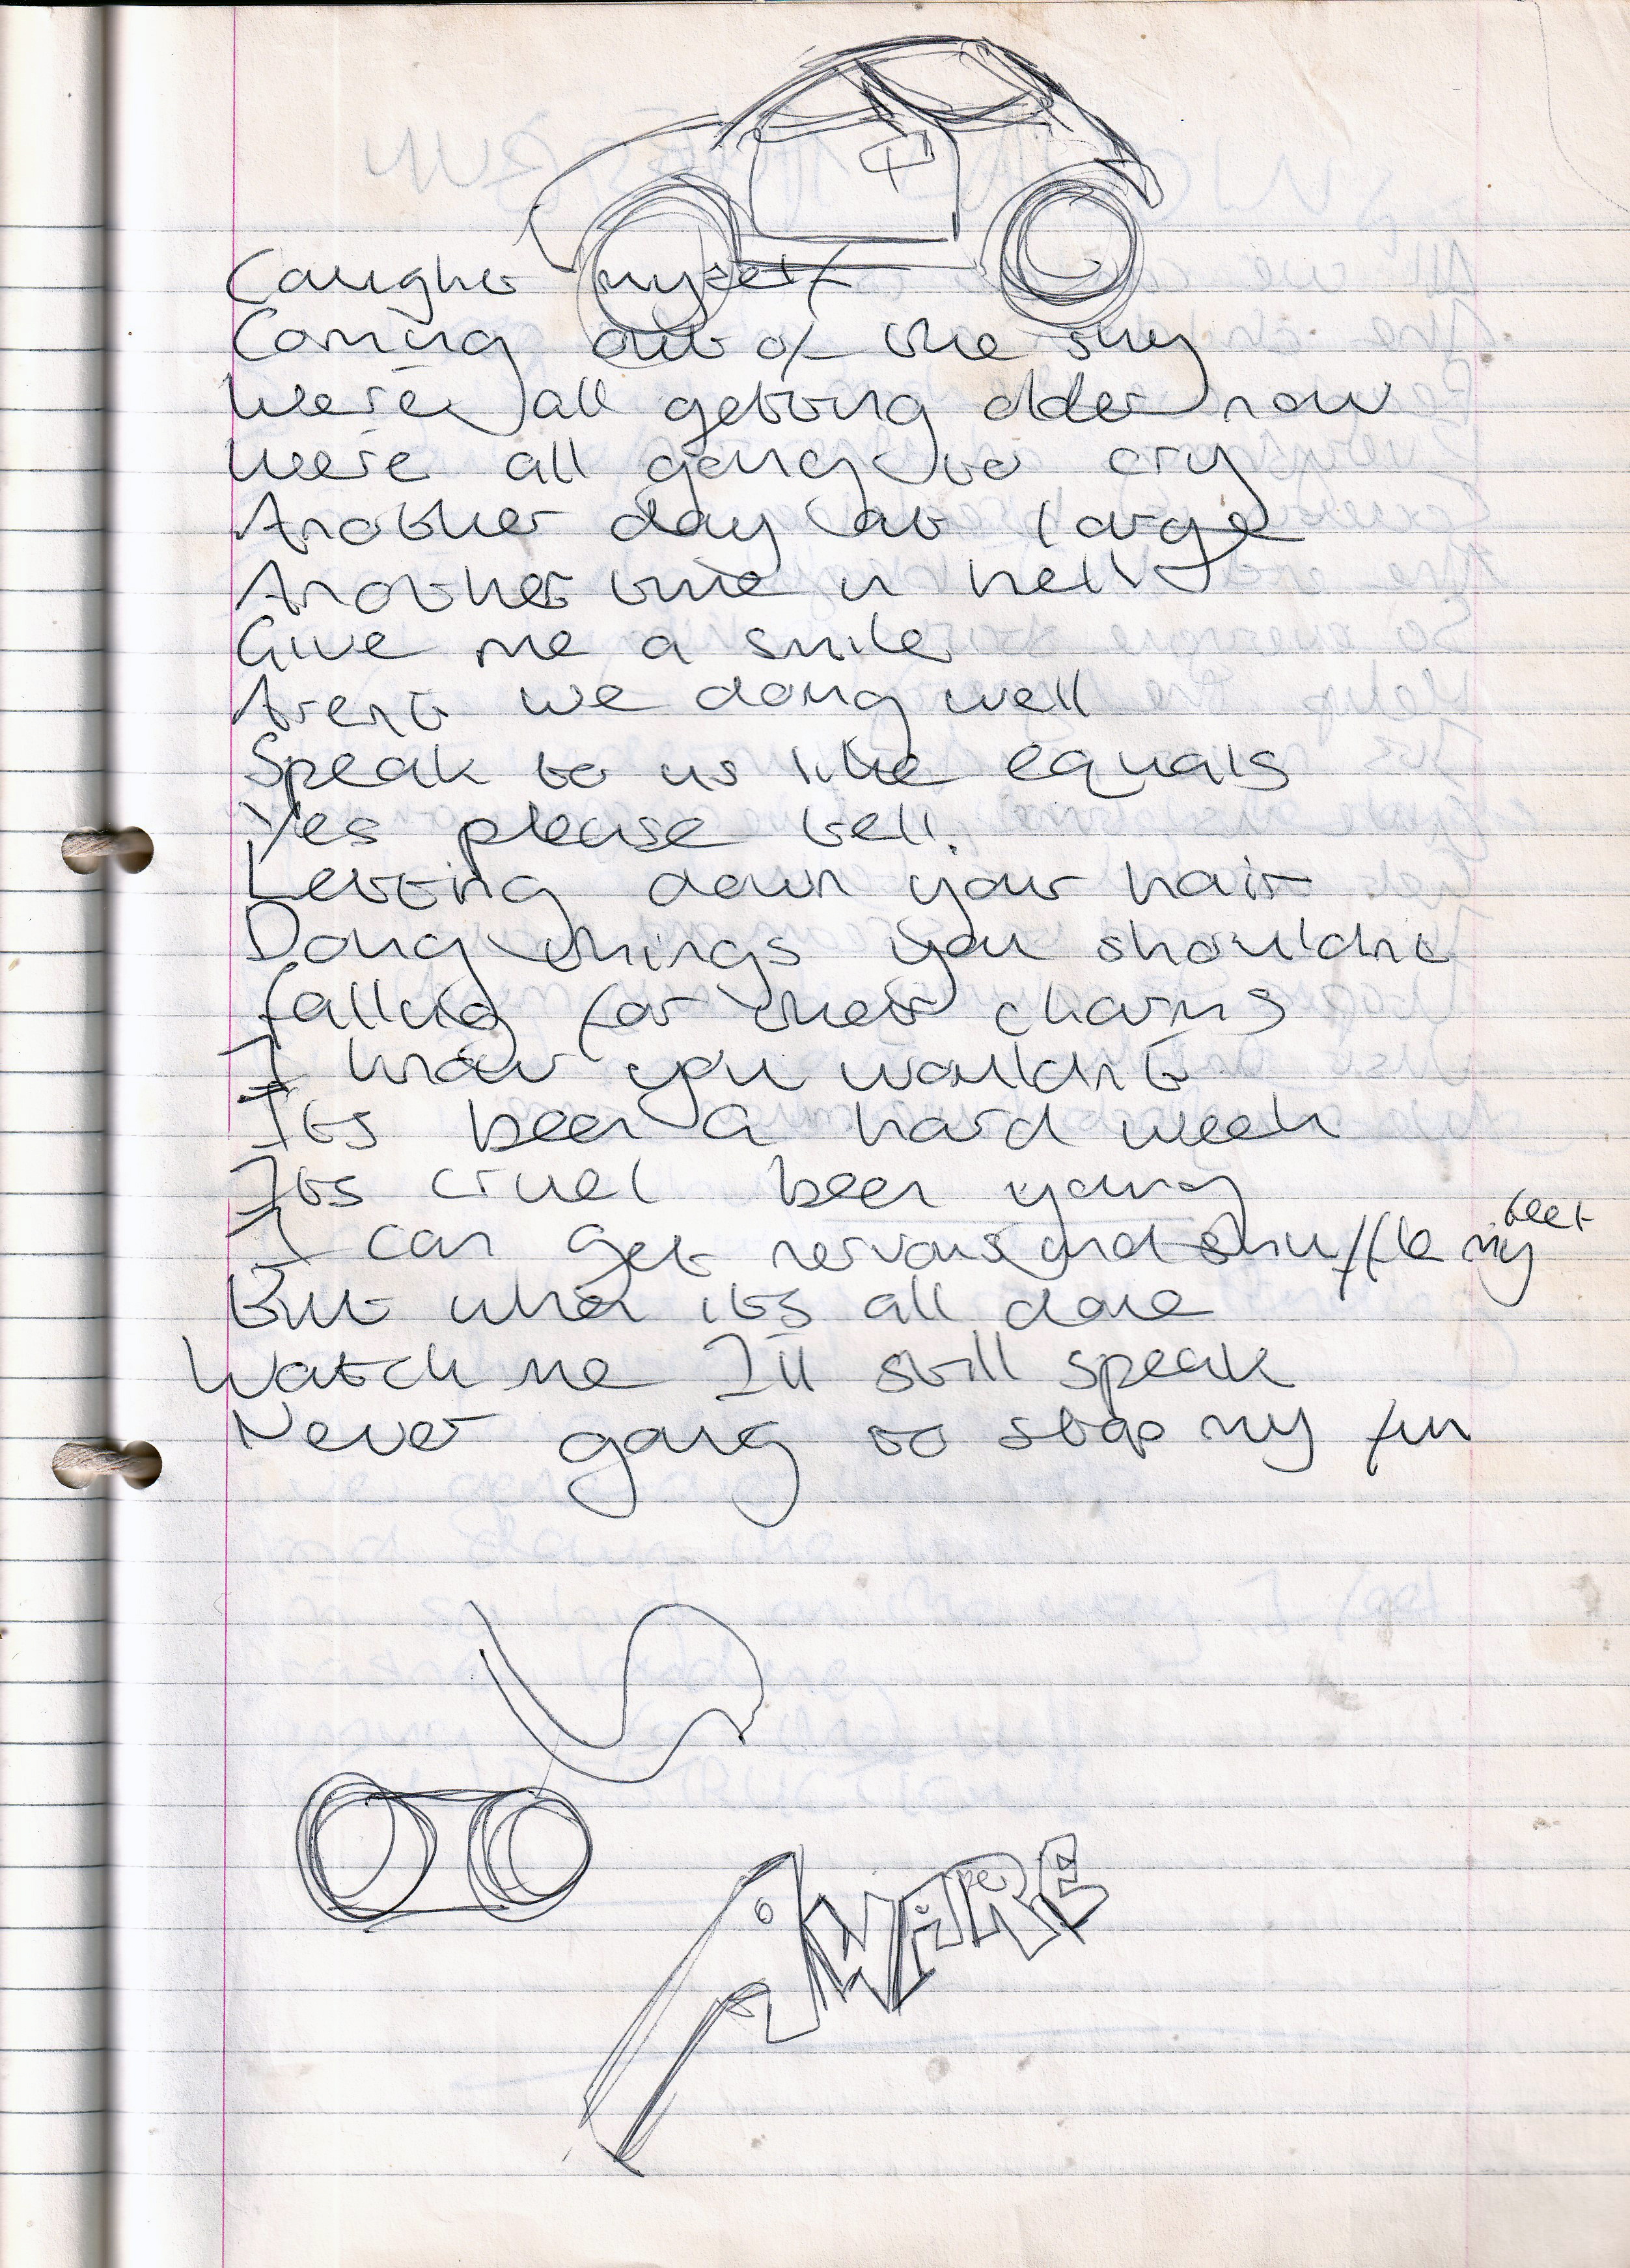 Caught myself
Coming out of the sky
We're all getting older now
We're all going to cry
Another day at large
Another time in hell
Give me a smile
Arent we doing well
Speak to us like equals
Yes please tell.
Letting down your hair
Doing things you shouldnt
falling for their charms
I know you wouldn't
Its been a hard week
Its cruel been young
I can get nervous and shuffle my feet
But when its all done
Watch me I'll still speak
Never going to stop my fun
AWARE